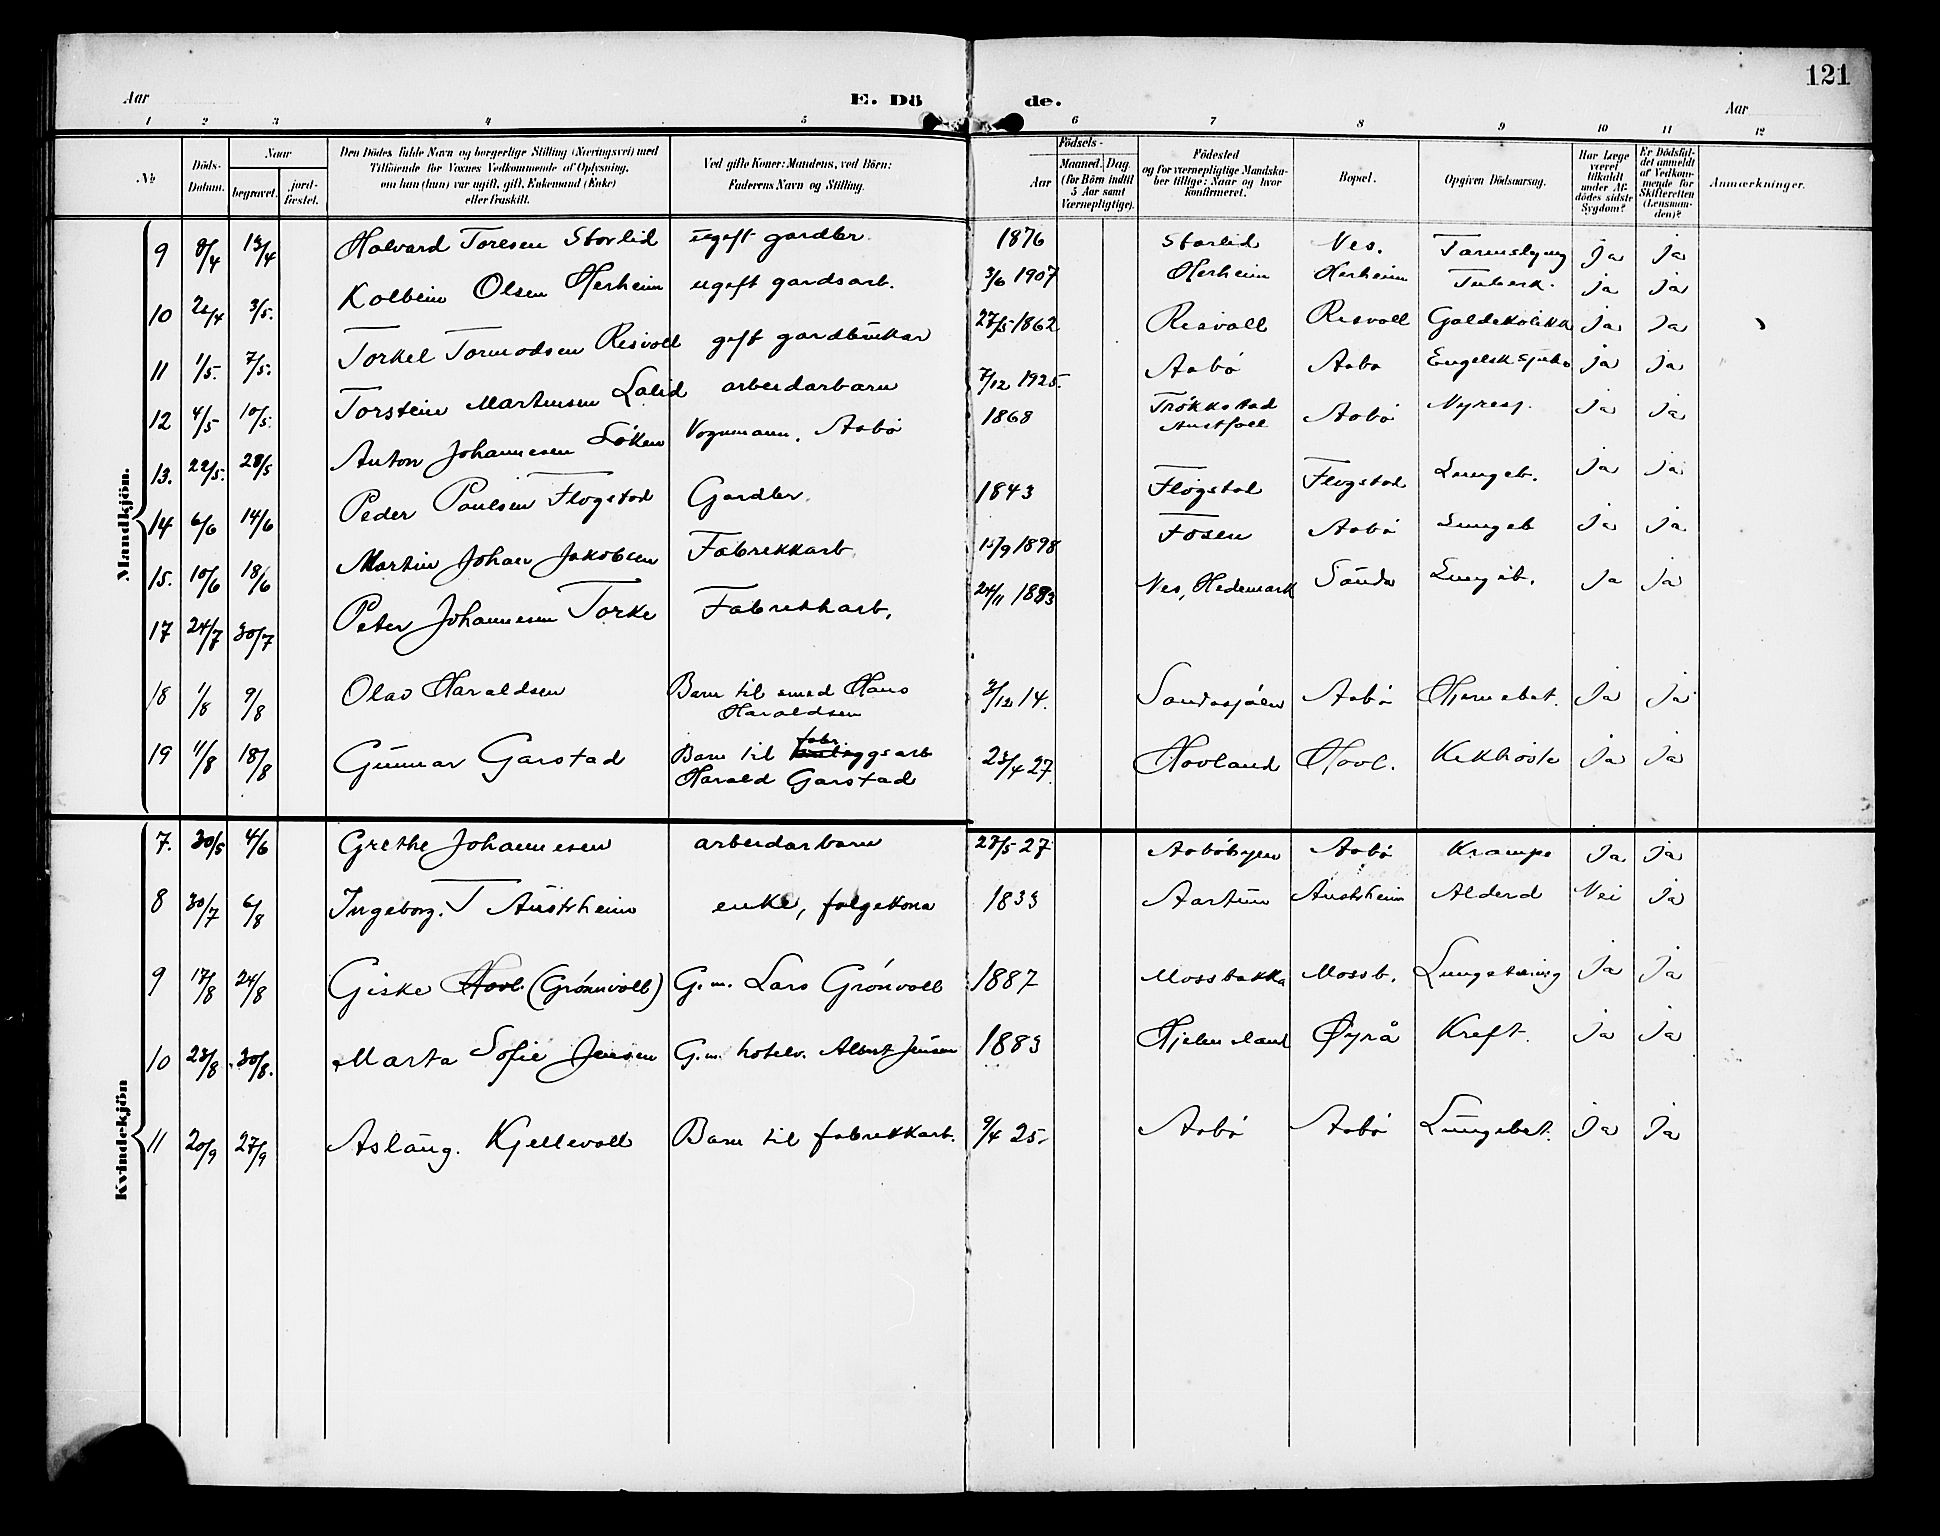 121
Aar E. Dö de. Aar
1 2 3 4 5 6 7 8 9 10 11 12
№
Döds-Datum.
Naar
begravet.
jord-fæstet.
Den Dödes fulde Navn og borgerlige Stilling (Næringsvei) med
Tilföiende for Voxnes Vedkommende af Oplysning,
om han (hun) var ugift, gift, Enkemand (Enke)
eller fraskilt.
Ved gifte Koner: Mandens, ved Börn:
Faderens Navn og Stilling.
Födsels-
Aar
Maaned. Dag.
(for Börn indtil
5 Aar samt
Værnepligtige).
Födested
og for værnepligtige Mandska-
ber tillige: Naar og hvor
konfirmeret.
Bopæl.
Opgiven Dödsaarsag.
Har Læge
været
tilkaldt
under Af-
dödes sidste
Sygdom?
Er Dödsfal-
det anmeldt
af Vedkom-
mende for
Skifteretten
(Lensman-
den)?
Anmærkninger.
Mandkjön.
9 8/4 13/4 Halvard Toresen Storlid ugift gardbr. 1876 Storlid Ves. Ja Ja
10 3/5. Kolbein Olsen Herheim ugift gardsarb. 3/6 1907 Herheim Herheim Tuberk. Ja Ja
11 1/5. 7/5. Torkel Tormodsen Risvoll gift gardbrukar 27/5 1862 Risvoll Risvoll Galdekolikk Ja Ja
12 4/5 10/5. Torstein Martensen Lalid arbeidarbarn 7/12 1925. Aabö Aabö Engelsk sjuke Ja Ja
13. 22/5. 28/5 Anton Johannesen Söken Vognmann. Aabö 1868 Trökkstad Austfoll Aabö Nyresj. Ja Ja
14 6/6 14/6 Peder Paulsen Flogstad Gardbr. 1843 Flogstad Flogstad Lungeb. Ja Ja
15. 10/6 18/6 Martin Johan Jakobsen Fabrekkarb 15/9 1898 Fosen Aabö Lungeb Ja Ja
17 24/7 30/7 Peter Johannesen Torke Fabrekkarb. 24/11 1883 Ves, Hedemark Sauda Lungeb. Ja Ja
18 1/8 9/8 Olav Haraldsen Barn til smed Hans
Haraldsen 3/12 14. Saudasjöen Aabö Hjernebet. Ja Ja
19 11/8 18/8 Gunnar Garstad Barn til fabr. arb
Harald Garstad 23/4 27. Hovland Hovl. Kikhoste Ja Ja
Kvindekjön
7. 30/5 4/6 Grethe Johannesen arbeidarbarn 27/5 27 Aaböbyen Aabö Krampe Ja Ja
8 30/7 6/8 Ingeborg. T Austrheim enke, folgekona 1833 Aartun Austrheim Alderd Nei Ja
9 17/8 24/8 Giske Hovl. (Grönnvoll) G.m. Lars Grönvoll 1887 Mossbakka Mossb. Ja Ja
10 23/8 30/8. Marta Sofie Jensen G.m. hotelv. Albert Jensen 1883 Hjelmeland Øyrå Kreft. Ja Ja
11 20/9 27/9 Aslaug. Kjellevoll Barn til fabrekkarb. 9/4 25. Aabö Aabö Lungebet. Ja Ja